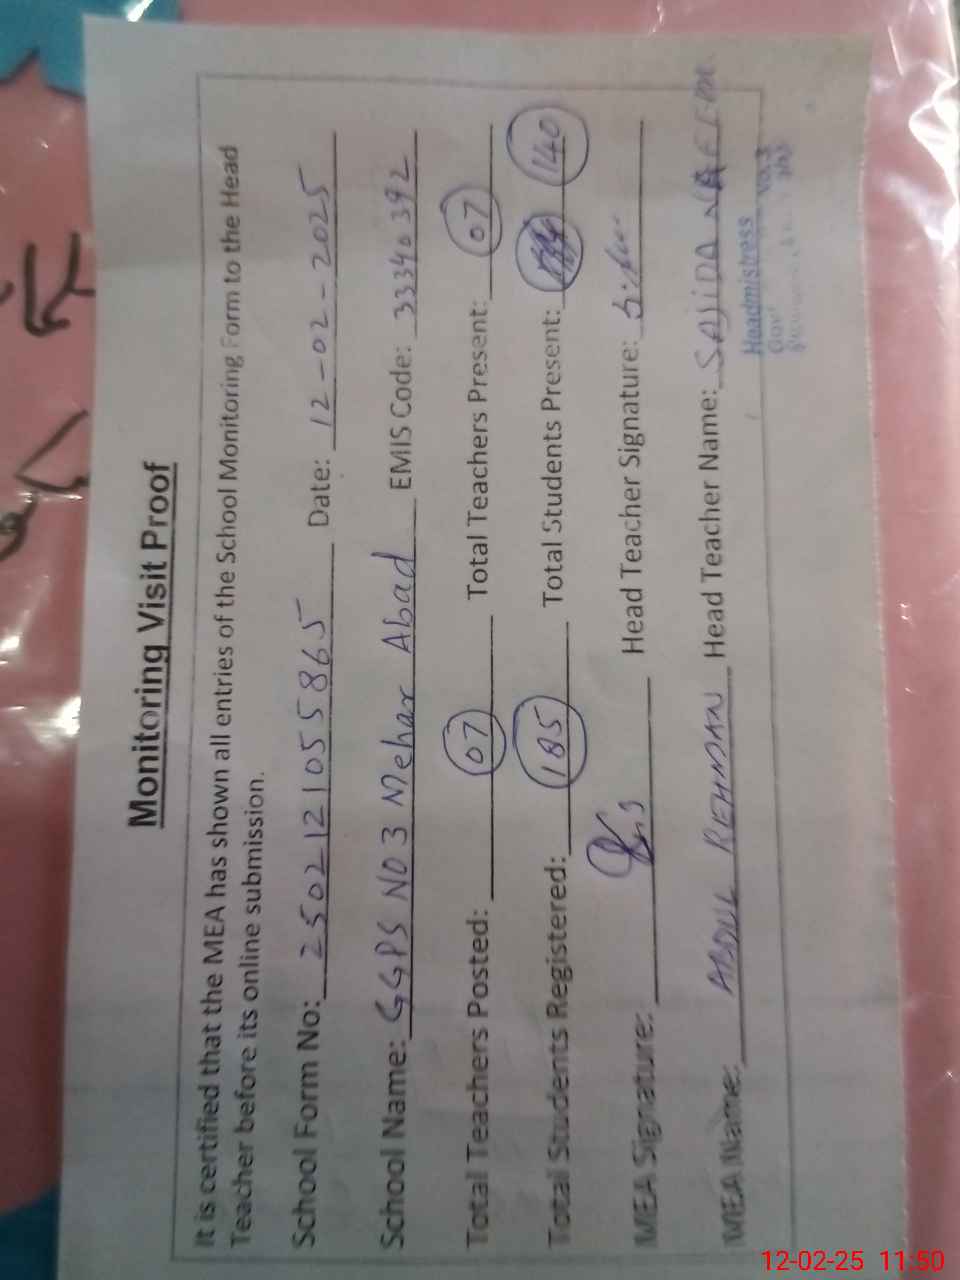 Monitoring Visit Proof
It is certified that the MEA has shown all entries of the School Monitoring Form to the Head
Teacher before its online submission.
School Form No: 250212105 5865 Date: 12-02-2025
School Name: GGPS NO 3 Mehar Abad EMIS Code: 33340392
Total Teachers Posted: 07 Total Teachers Present: 07
Total Students Registered: 185 Total Students Present: 140
MEA Signature: Head Teacher Signature:
MEA Name: ABDUL REHMAN Head Teacher Name: SAJIDA NAEEM
Headmistress
Govt
12-02-25 11:50